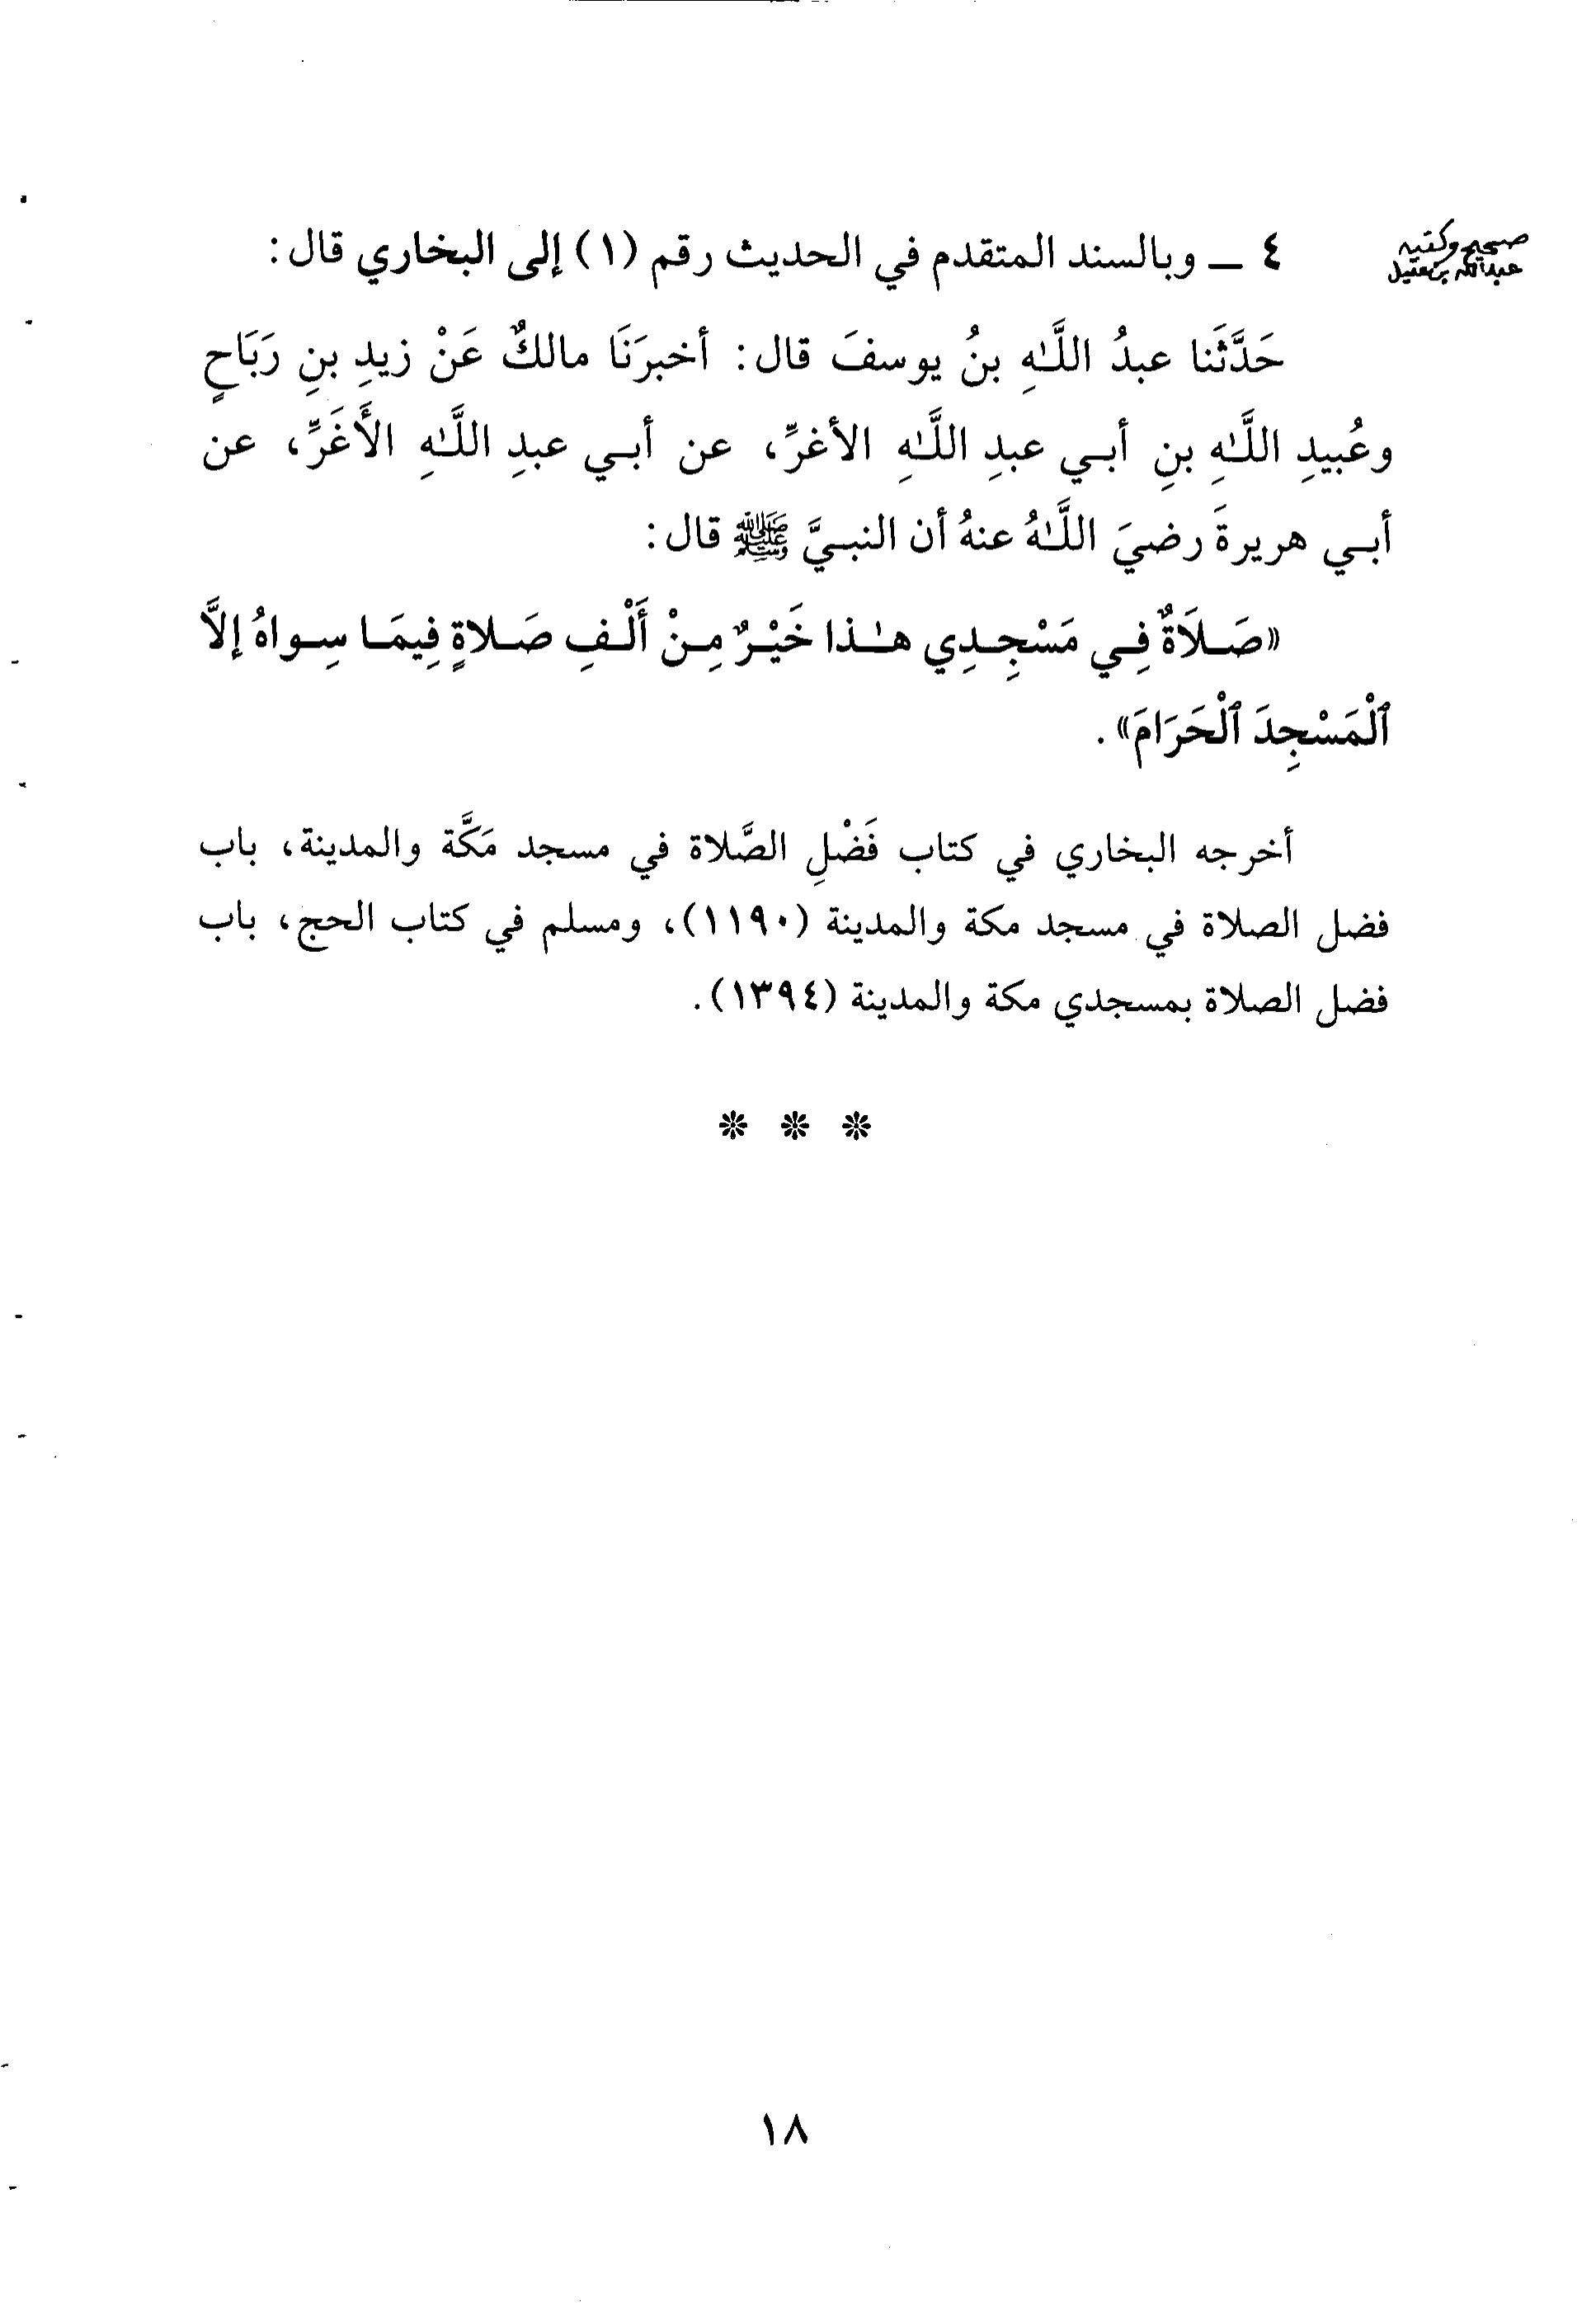 صحيح وكتبه
عبدالله بن عقيل
٤ ــ وبالسند المتقدم في الحديث رقم (١) إلى البخاري قال:
حَدَّثَنا عبدُ اللَّـٰهِ بنُ يوسفَ قال: أخبرَنَا مالكٌ عَنْ زيدِ بنِ رَبَاحٍ
وعُبيدِ اللَّـٰهِ بنِ أبـي عبدِ اللَّـٰهِ الأغرِّ، عن أبـي عبدِ اللَّـٰهِ الأَغَرِّ، عن
أبـي هريرةَ رضيَ اللَّـٰهُ عنهُ أن النبـيَّ ﷺ قال:
«صَـلَاةٌ فِـي مَسْجِـدِي هـٰـذا خَيْـرٌ مِـنْ أَلْـفِ صَـلاةٍ فِيمَـا سِـواهُ إلاَّ
ٱلْمَسْجِدَ ٱلْحَرَامَ».
أخرجه البخاري في كتاب فَضْلِ الصَّلاة في مسجد مَكَّة والمدينة، باب
فضل الصلاة في مسجد مكة والمدينة (١١٩٠)، ومسلم في كتاب الحج، باب
فضل الصلاة بمسجدي مكة والمدينة (١٣٩٤).
١٨